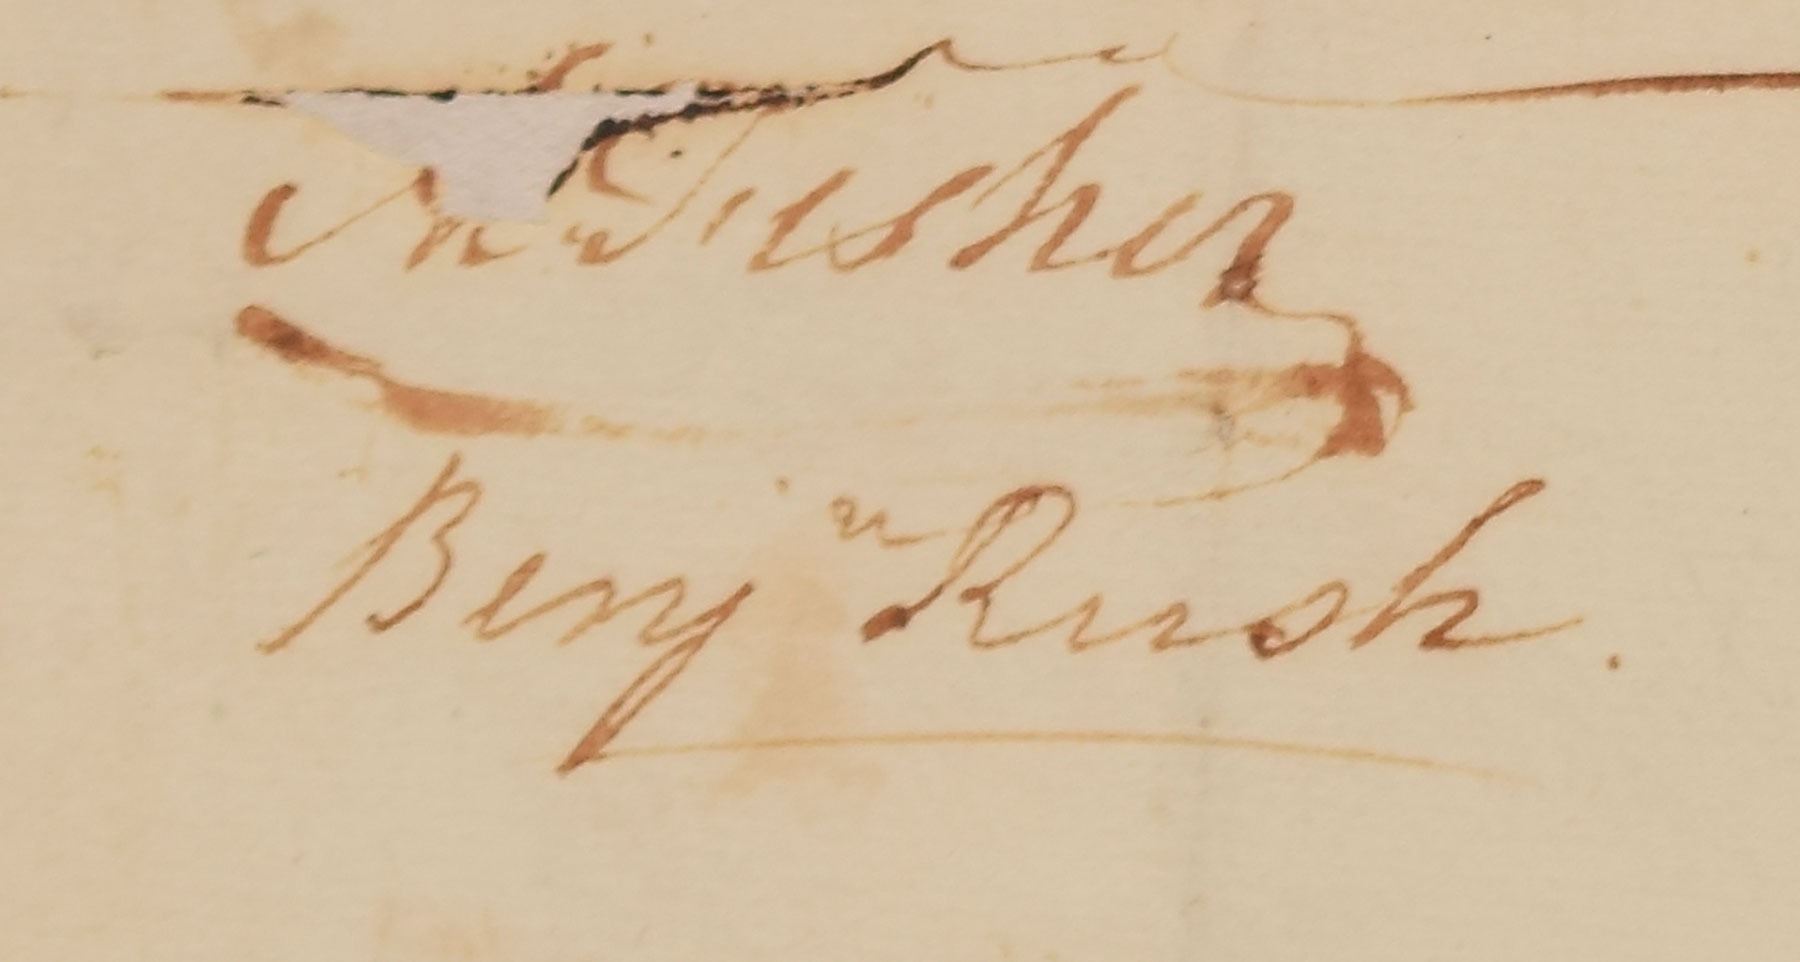 Fisher
Benjn Rush.